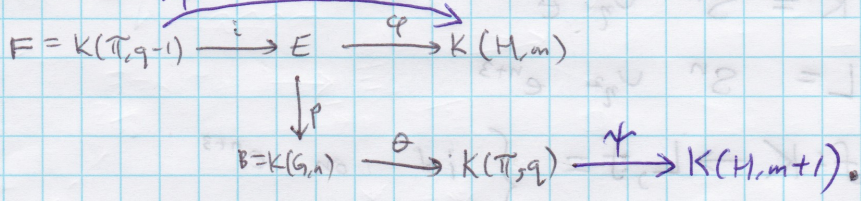 F = K(π, q-1) i→ E φ→ K(H, m)
↓p
B = K(G, n) θ→ K(π, q) ψ→ K(H, m+1).